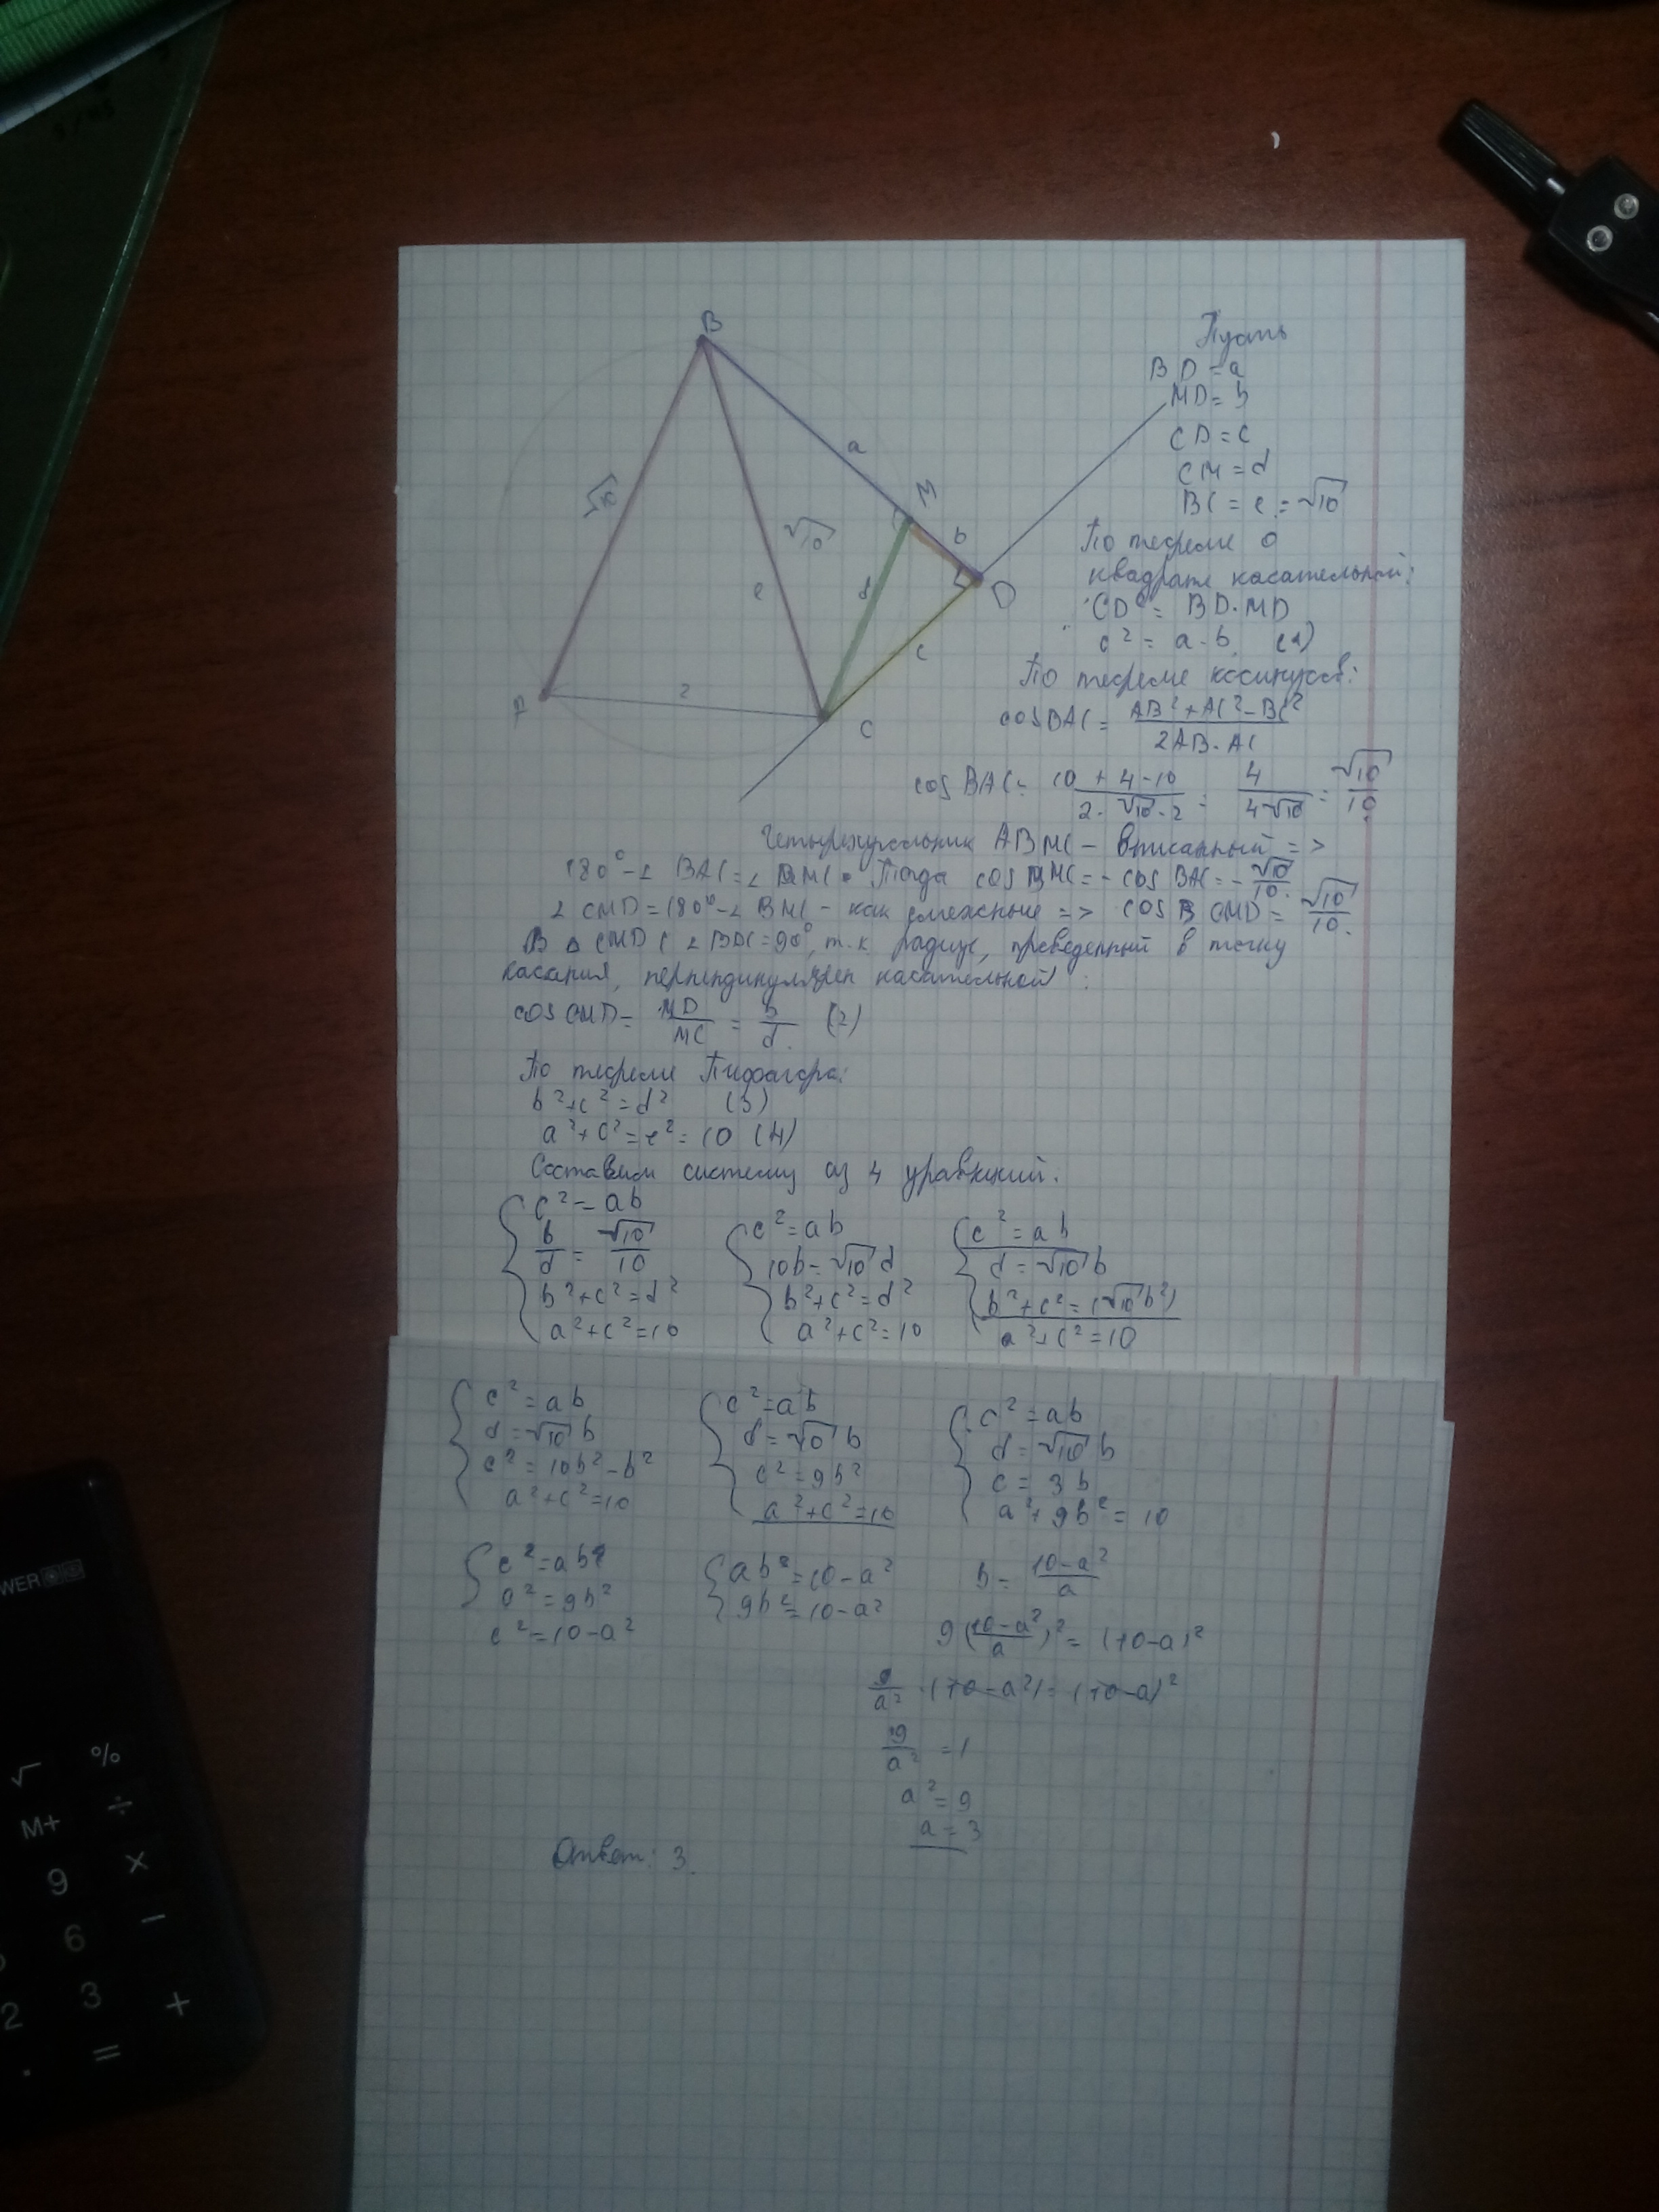 B
Пусть
BD = a
MD = b
CD = c
CM = d
BC = e = √10
a
M
√10
√10
b
D
e
d
c
A
2
C
По теореме о
квадрате касательной:
CD² = BD·MD
c² = a·b (1)
По теореме косинусов:
cosBAC = (AB² + AC² - BC²) / (2AB·AC)
cos BAC = (10 + 4 - 10) / (2·√10·2) = 4 / (4√10) = √10 / 10
Четырехугольник ABMC - вписанный =>
180° - ∠BAC = ∠BMC. Тогда cos BMC = -cos BAC = -√10/10.
∠CMD = 180° - ∠BMC - как смежные => cos CMD = √10/10.
В △CMD с ∠BDC = 90°, т.к. радиус, проведенный в точку
касания, перпендикулярен касательной:
cos CMD = MD/MC = b/d. (2)
По теореме Пифагора:
b² + c² = d² (3)
a² + c² = e² = 10 (4)
Составим систему из 4 уравнений.
c² = ab
b/d = √10/10
b² + c² = d²
a² + c² = 10
c² = ab
10b = √10 d
b² + c² = d²
a² + c² = 10
c² = ab
d = √10 b
b² + c² = (√10 b²)
a² + c² = 10
c² = ab
d = √10 b
c² = 10b² - b²
a² + c² = 10
c² = ab
d = √10 b
c² = 9b²
a² + c² = 10
c² = ab
d = √10 b
c = 3b
a² + 9b² = 10
c² = ab
c² = 9b²
c² = 10 - a²
ab = 10 - a²
9b² = 10 - a²
b = (10 - a²) / a
9((10 - a²)/a)² = (10 - a)²
9/a² · (10 - a²) = (10 - a)²
9/a² = 1
a² = 9
a = 3
Ответ: 3.
WER
√
%
M+
÷
9
×
6
−
2
3
+
.
=